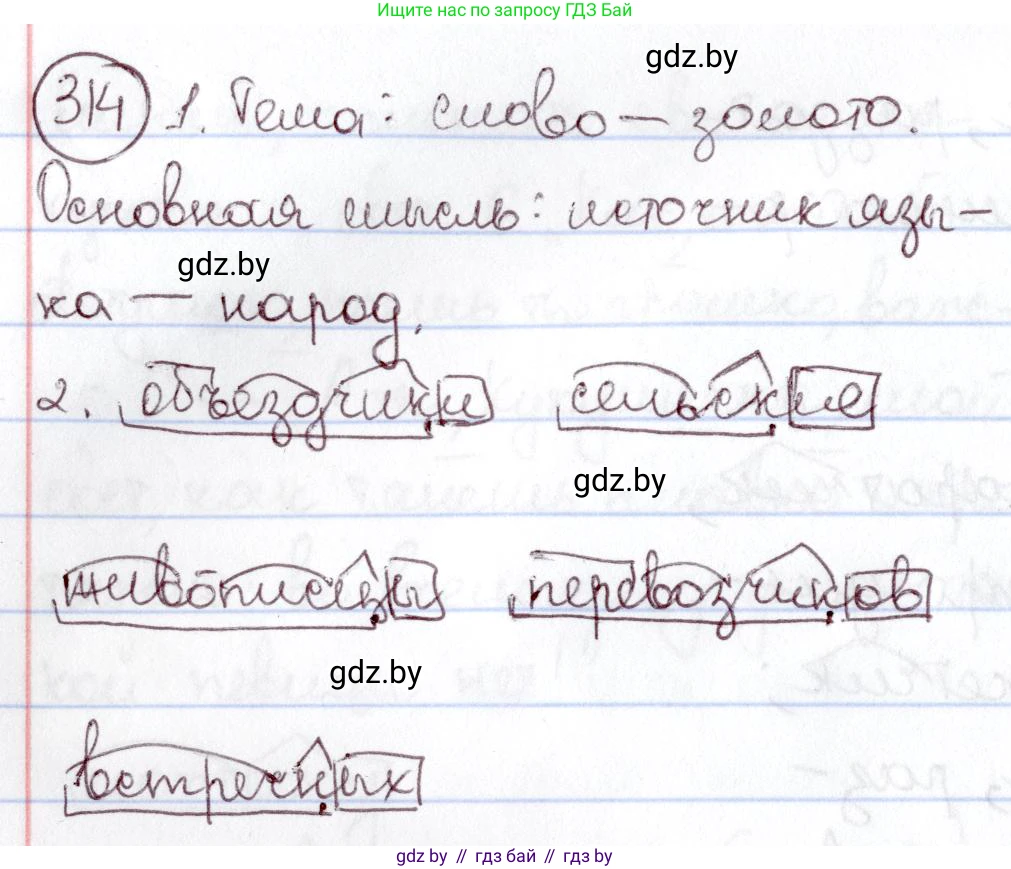 Ищите нас по запросу ГДЗ Бай
gdz.by
314 1. Тема: слово — золото.
Основная мысль: источник язы-
gdz.by
ка — народ.
2. объездчики сельские
gdz.by
живописцы перевозчиков
gdz.by
встречных
gdz.by // гдз бай // гдз by